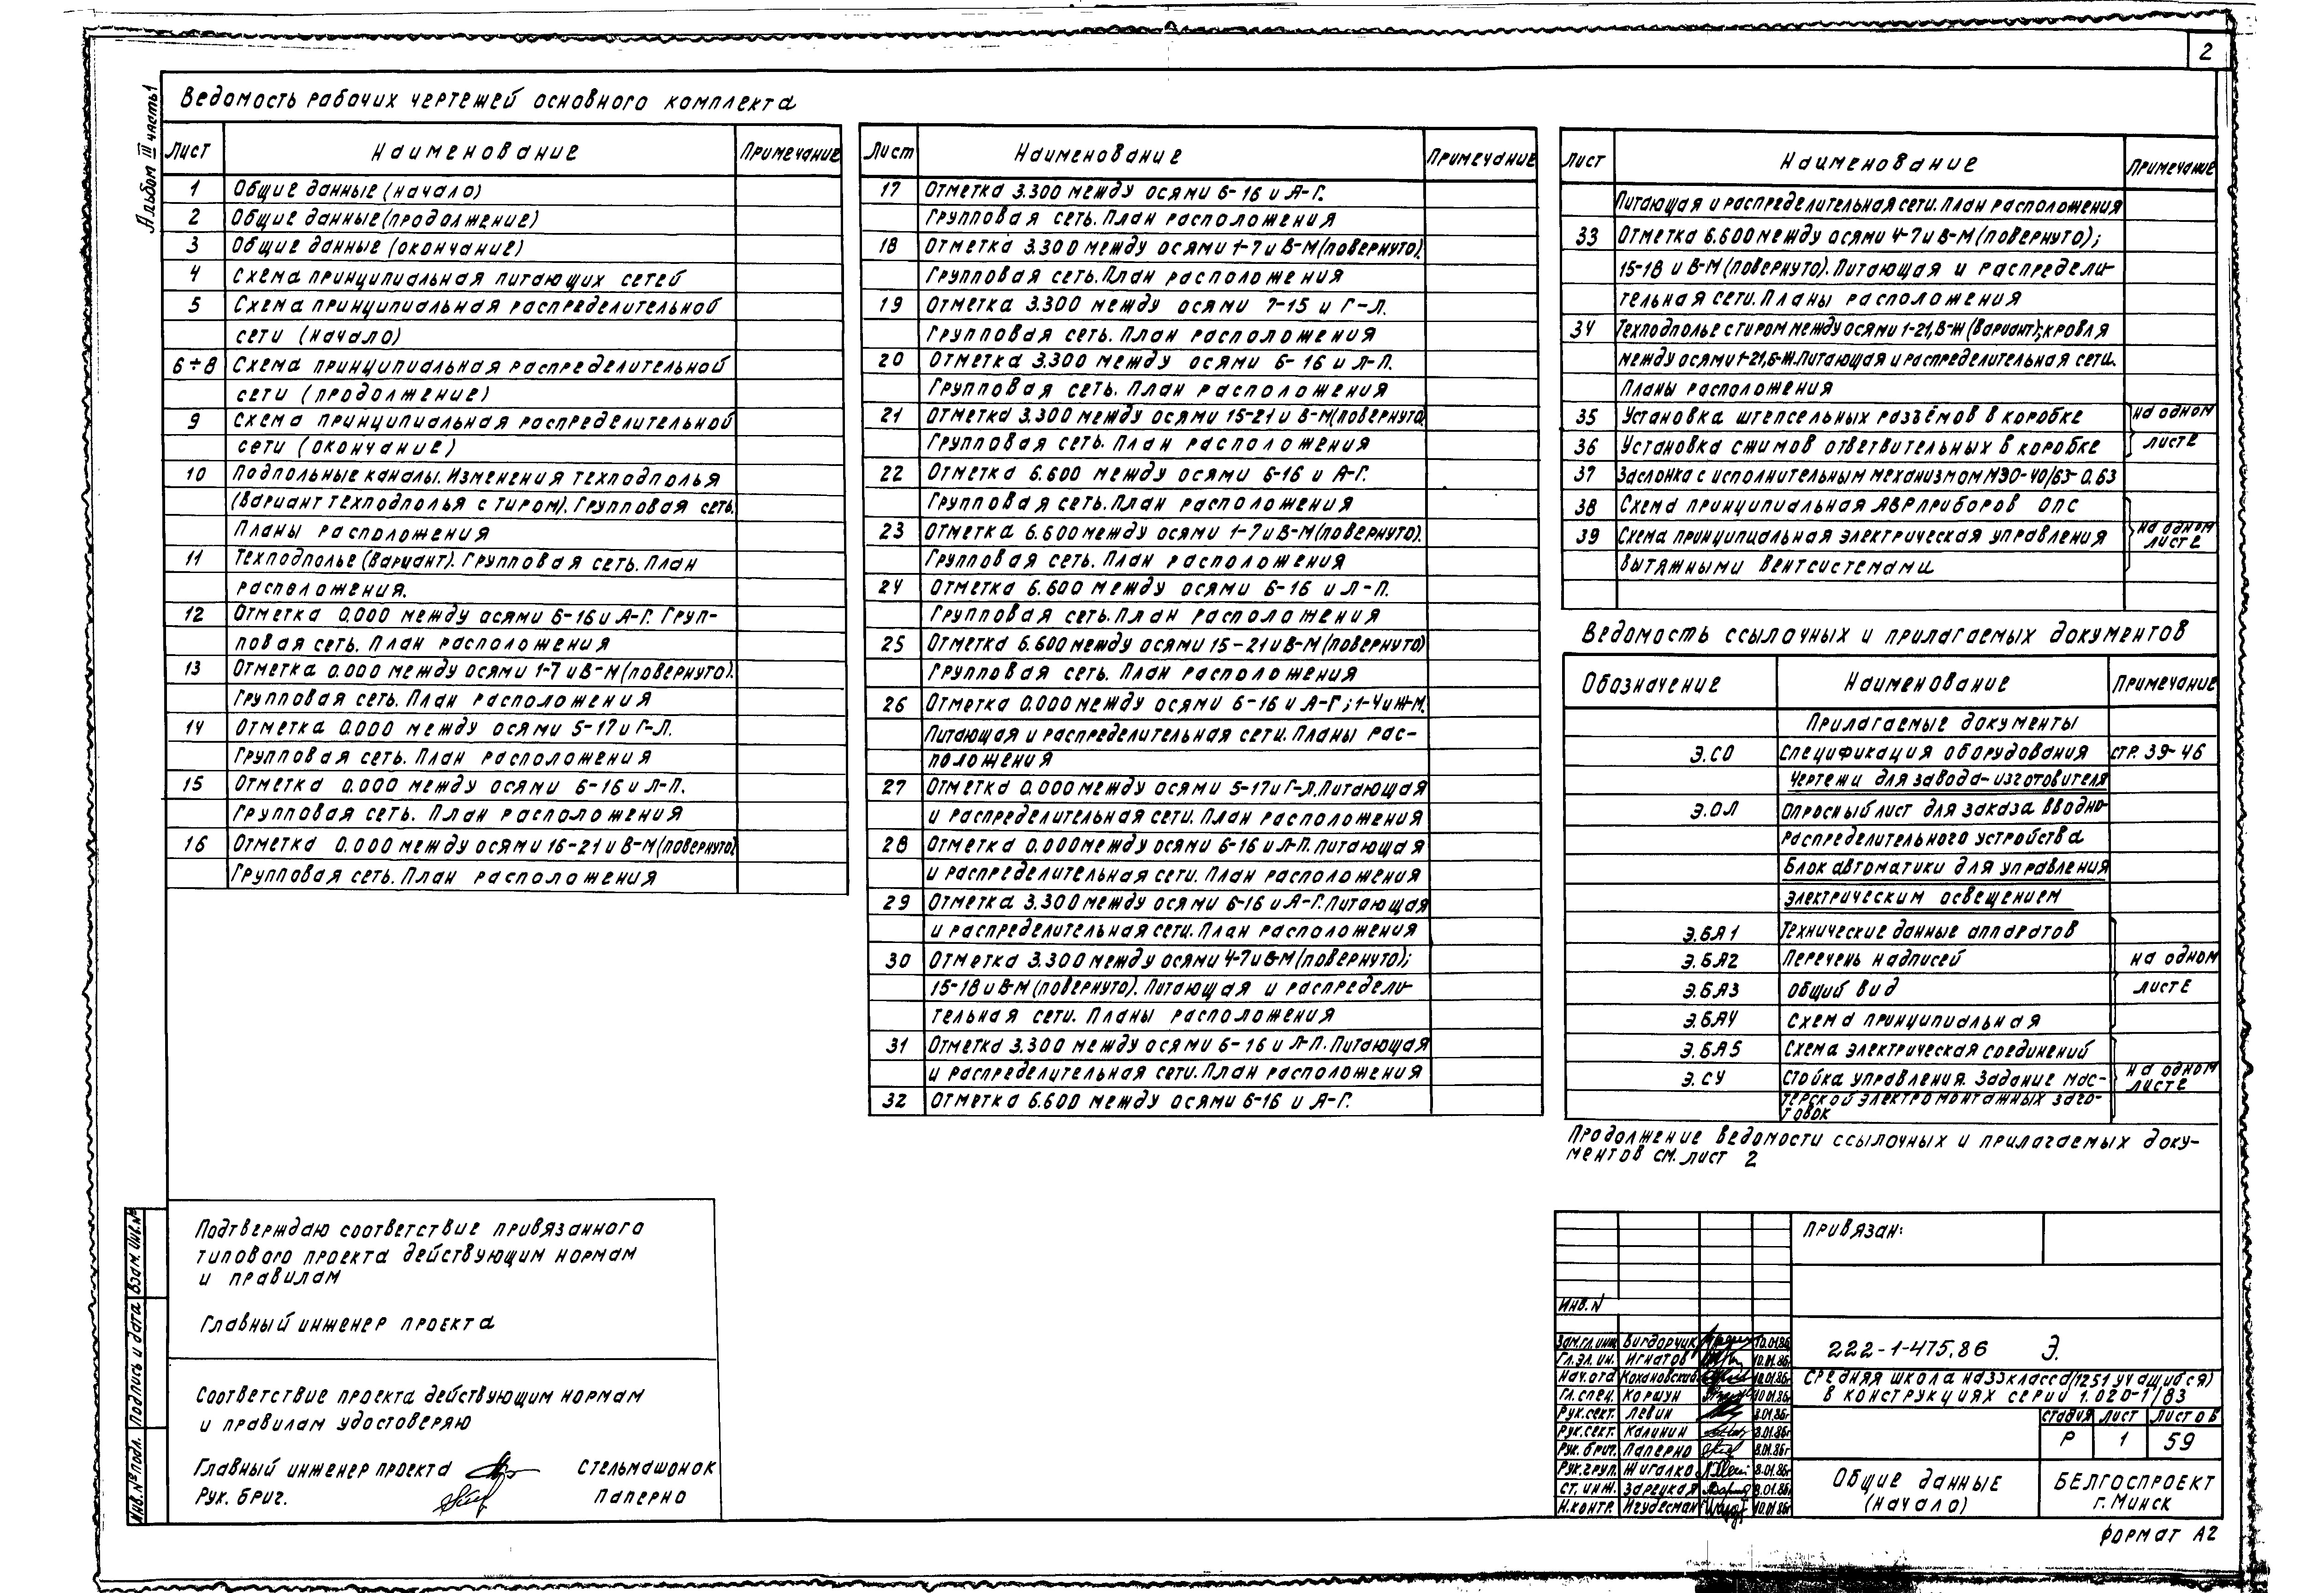 2
Альбом III часть 1
Ведомость рабочих чертежей основного комплекта
Лист Наименование Примечание
1 Общие данные (начало)
2 Общие данные (продолжение)
3 Общие данные (окончание)
4 Схема принципиальная питающих сетей
5 Схема принципиальная распределительной
сети (начало)
6÷8 Схема принципиальная распределительной
сети (продолжение)
9 Схема принципиальная распределительной
сети (окончание)
10 Подпольные каналы. Изменения техподполья
(вариант техподполья с тиром). Групповая сеть.
Планы расположения
11 Техподполье (вариант). Групповая сеть. План
расположения.
12 Отметка 0.000 между осями 6-16 и А-Г. Груп-
повая сеть. План расположения
13 Отметка 0.000 между осями 1-7 и В-М (повернуто).
Групповая сеть. План расположения
14 Отметка 0.000 между осями 5-17 и Г-Л.
Групповая сеть. План расположения
15 Отметка 0.000 между осями 6-16 и Л-П.
Групповая сеть. План расположения
16 Отметка 0.000 между осями 16-21 и В-М (повернуто)
Групповая сеть. План расположения
Лист Наименование Примечание
17 Отметка 3.300 между осями 6-16 и А-Г.
Групповая сеть. План расположения
18 Отметка 3.300 между осями 1-7 и В-М (повернуто).
Групповая сеть. План расположения
19 Отметка 3.300 между осями 7-15 и Г-Л.
Групповая сеть. План расположения
20 Отметка 3.300 между осями 6-16 и Л-П.
Групповая сеть. План расположения
21 Отметка 3.300 между осями 15-21 и В-М (повернуто
Групповая сеть. План расположения
22 Отметка 6.600 между осями 6-16 и А-Г.
Групповая сеть. План расположения
23 Отметка 6.600 между осями 1-7 и В-М (повернуто).
Групповая сеть. План расположения
24 Отметка 6.600 между осями 6-16 и Л-П.
Групповая сеть. План расположения
25 Отметка 6.600 между осями 15-21 и В-М (повернуто)
Групповая сеть. План расположения
26 Отметка 0.000 между осями 6-16 и А-Г; 1-4 и Ж-М.
Питающая и распределительная сети. Планы рас-
положения
27 Отметка 0.000 между осями 5-17 и Г-Л. Питающая
и распределительная сети. План расположения
28 Отметка 0.000 между осями 6-16 и Л-П. Питающая
и распределительная сети. План расположения
29 Отметка 3.300 между осями 6-16 и А-Г. Питающая
и распределительная сети. План расположения
30 Отметка 3.300 между осями 4-7 и В-М (повернуто);
15-18 и В-М (повернуто). Питающая и распредели-
тельная сети. Планы расположения
31 Отметка 3.300 между осями 6-16 и Л-П. Питающая
и распределительная сети. План расположения
32 Отметка 6.600 между осями 6-16 и А-Г.
Лист Наименование Примечание
Питающая и распределительная сети. План расположения
33 Отметка 6.600 между осями 4-7 и В-М (повернуто);
15-18 и В-М (повернуто). Питающая и распредели-
тельная сети. Планы расположения
34 Техподполье с тиром между осями 1-21, В-Ж (вариант); кровля
между осями 1-21, Б-Ж. Питающая и распределительная сети.
Планы расположения
35 Установка штепсельных разъёмов в коробке на одном
36 Установка сжимов ответвительных в коробке листе
37 Заслонка с исполнительным механизмом МЭО-40/63-0.63
38 Схема принципиальная АВР приборов ОПС
39 Схема принципиальная электрическая управления на одном листе
вытяжными вентсистемами
Ведомость ссылочных и прилагаемых документов
Обозначение Наименование Примечание
Прилагаемые документы
Э.СО Спецификация оборудования стр. 39-46
Чертежи для завода-изготовителя
Э.ОЛ Опросный лист для заказа вводно-
распределительного устройства
Блок автоматики для управления
электрическим освещением
Э.БА1 Технические данные аппаратов
Э.БА2 Перечень надписей на одном
Э.БА3 Общий вид листе
Э.БА4 Схема принципиальная
Э.БА5 Схема электрическая соединений
Э.СУ Стойка управления. Задание мас- на одном листе
терской электромонтажных заго-
товок
Продолжение ведомости ссылочных и прилагаемых доку-
ментов см. лист 2
Подтверждаю соответствие привязанного
типового проекта действующим нормам
и правилам
Главный инженер проекта
Соответствие проекта действующим нормам
и правилам удостоверяю
Главный инженер проекта Стельмашонок
Рук. бриг. Паперно
Инв. № подл. Подпись и дата Взам. инв. №
Привязан:
Инв. N
Зам.гл.инж. Вигдорчик 10.01.86
Гл.эл.ин. Игнатов 10.01.86
Нач.отд Кохановский 10.01.86
Гл.спец. Коршун 10.01.86
Рук.сект. Левин 8.01.86г
Рук.сект. Калинин 8.01.86г
Рук. бриг. Паперно 8.01.86г
Рук.груп. Жигалко 8.01.86г
Ст. инж. Зарецкая 8.01.86г
Н.контр. Игудесман 10.01.86
222-1-475.86 Э.
Средняя школа на 33 класса (1251 учащийся)
в конструкциях серии 1.020-1/83
Стадия Лист Листов
Р 1 59
Общие данные
(начало)
БЕЛГОСПРОЕКТ
г. Минск
Формат А2